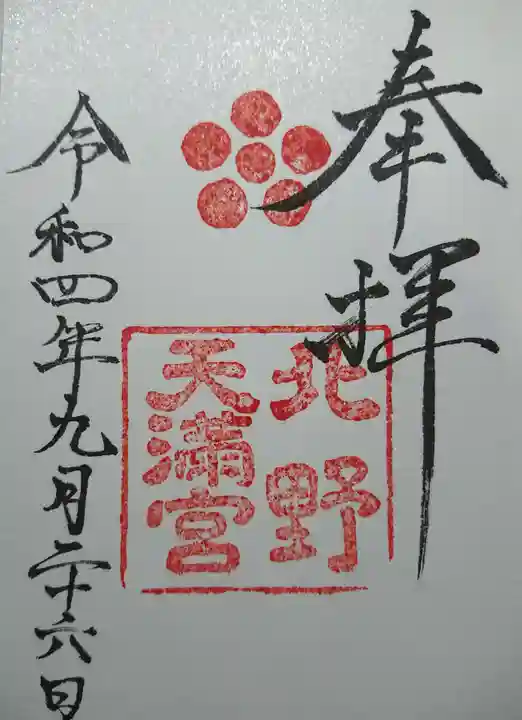 奉拝
北野
天満宮
令和四年九月二十六日